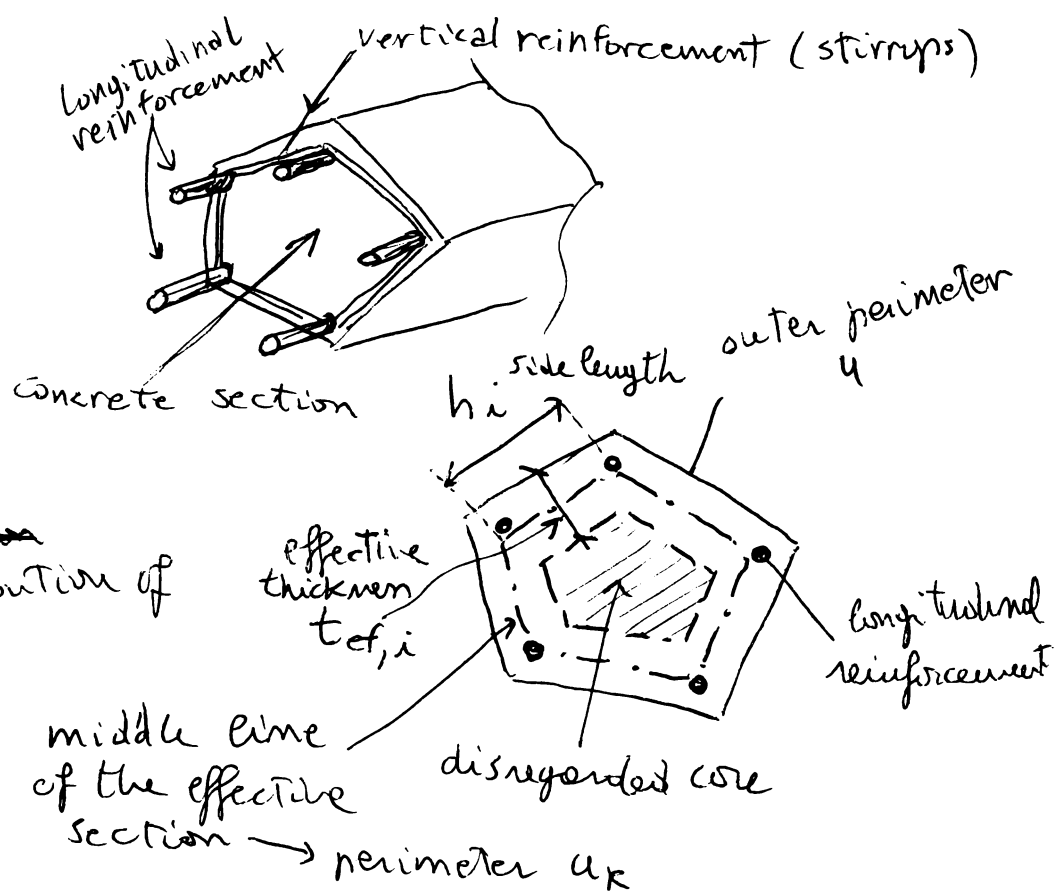 Longitudinal
reinforcement
vertical reinforcement (stirrups)
concrete section
side length
hi
outer perimeter
u
of
effective
thickness
tef,i
longitudinal
reinforcement
middle line
of the effective
section → perimeter uk
disregarded core